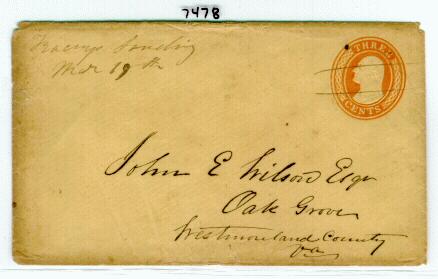 7478
Tracy's Landing
Mar 19th
THREE
CENTS
John E Wilson Esqr
Oak Grove
Westmoreland County
Va